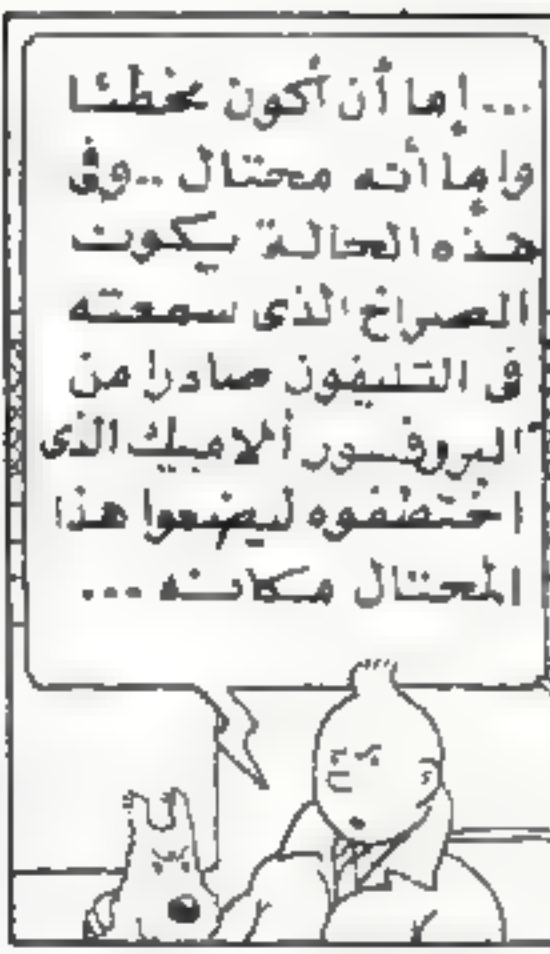 ... إما أن أكون مخطئا
وإما أنه محتال .. وفى
هذه الحالة يكون
الصراخ الذى سمعته
فى التليفون صادرا من
البروفسور ألامبيك الذى
اختطفوه ليضعوا هذا
المحتال مكانه ...